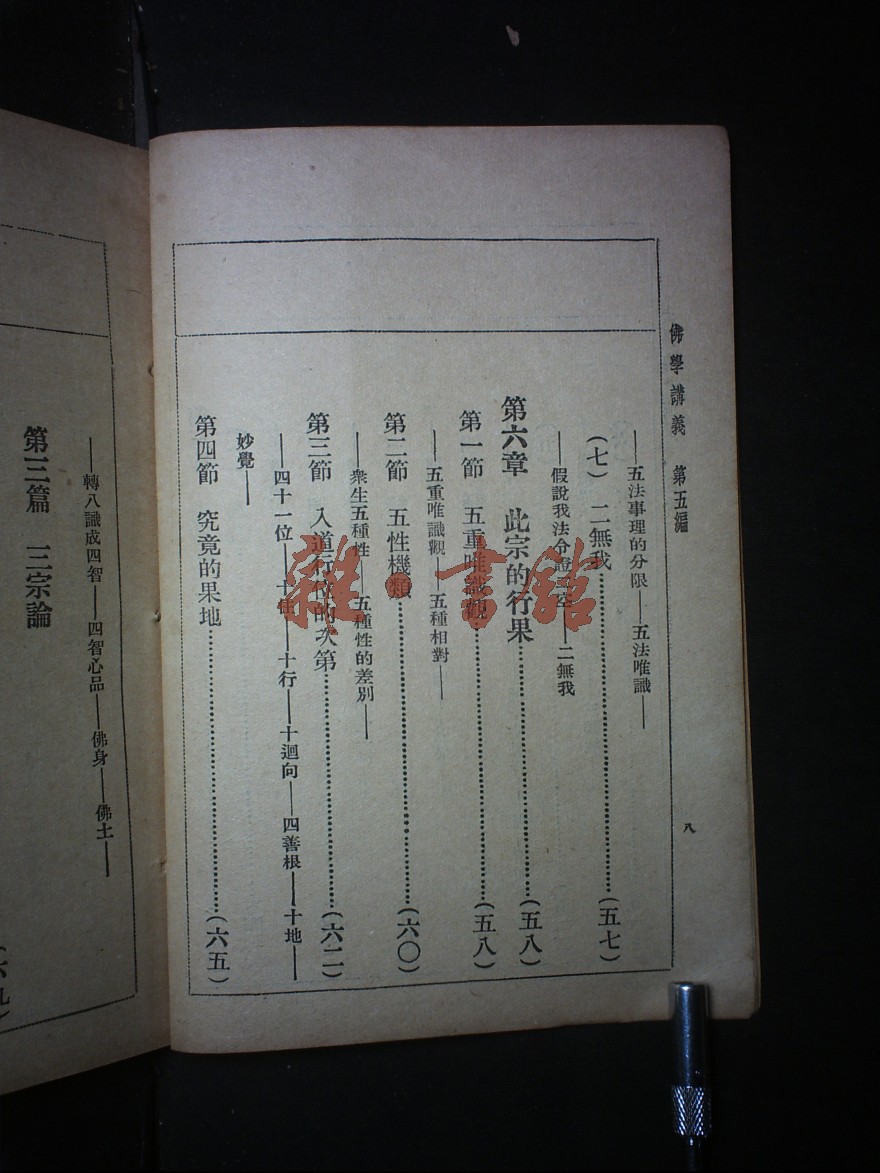 佛學講義 第五編
八
——五法事理的分限——五法唯識——
(七) 二無我……(五七)
——假說我法令證 ——二無我
第六章 此宗的行果……(五八)
第一節 五重唯識觀……(五八)
——五重唯識觀——五種相對——
第二節 五性機類……(六〇)
——衆生五種性——五種性的差別——
第三節 入道行位的次第……(六二)
——四十一位——十住——十行——十迴向——四善根——十地——
妙覺——
第四節 究竟的果地……(六五)
——轉八識成四智——四智心品——佛身——佛土——
第三篇 三宗論
(六九)
雜·書館